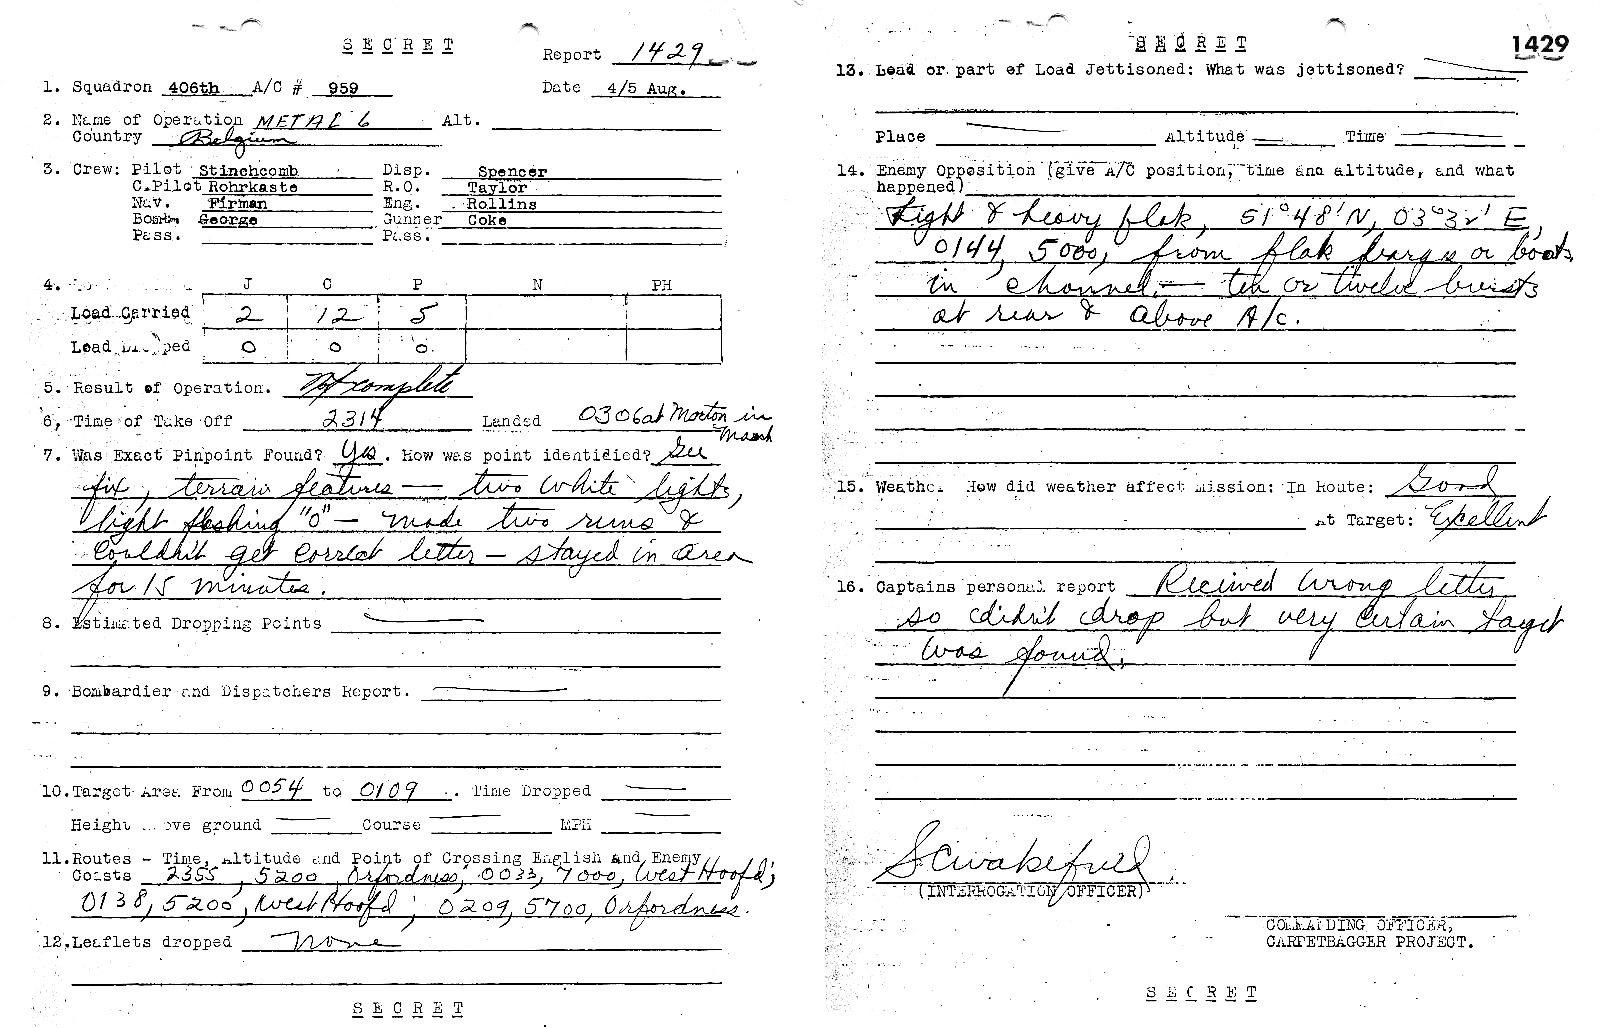 SECRET
Report 1429
1. Squadron 406th A/C # 959 Date 4/5 Aug.
2. Name of Operation METAL 6 Alt.
Country Belgium
3. Crew: Pilot Stinchcomb Disp. Spencer
C.Pilot Rohrkaste R.O. Taylor
Nav. Firman Eng. Rollins
Bomb. George Gunner Coke
Pass. Pass.
4. J C P N PH
Load Carried 2 12 5
Load Dropped 0 0 0
5. Result of Operation. Not complete
6. Time of Take Off 2314 Landed 0306 at Morton in
Marsh
7. Was Exact Pinpoint Found? Yes. How was point identidied? Gee
fix, terrain features — two white lights,
light flashing "O" — made two runs &
couldn't get correct letter — stayed in area
for 15 minutes.
8. Estimated Dropping Points
9. Bombardier and Dispatchers Report.
10. Target Area From 0054 to 0109. Time Dropped
Height above ground Course MPH
11. Routes - Time, Altitude and Point of Crossing English and Enemy
Coasts 2355, 5200, Orfordness; 0033, 7000, West Hoofd;
0138, 5200, West Hoofd; 0209, 5700, Orfordness.
12. Leaflets dropped None
SECRET
SECRET
1429
13. Load or part of Load Jettisoned: What was jettisoned?
Place Altitude Time
14. Enemy Opposition (give A/C position, time and altitude, and what
happened)
Light & heavy flak, 51°48'N, 03°32' E,
0144, 5000, from flak barges or boats
in channel — ten or twelve bursts
at rear & above A/c.
15. Weather How did weather affect mission: In Route: Good
At Target: Excellent
16. Captains personal report Recieved wrong letter
so didn't drop but very certain target
was found.
(INTERROGATION OFFICER)
COMMANDING OFFICER,
CARPETBAGGER PROJECT.
SECRET